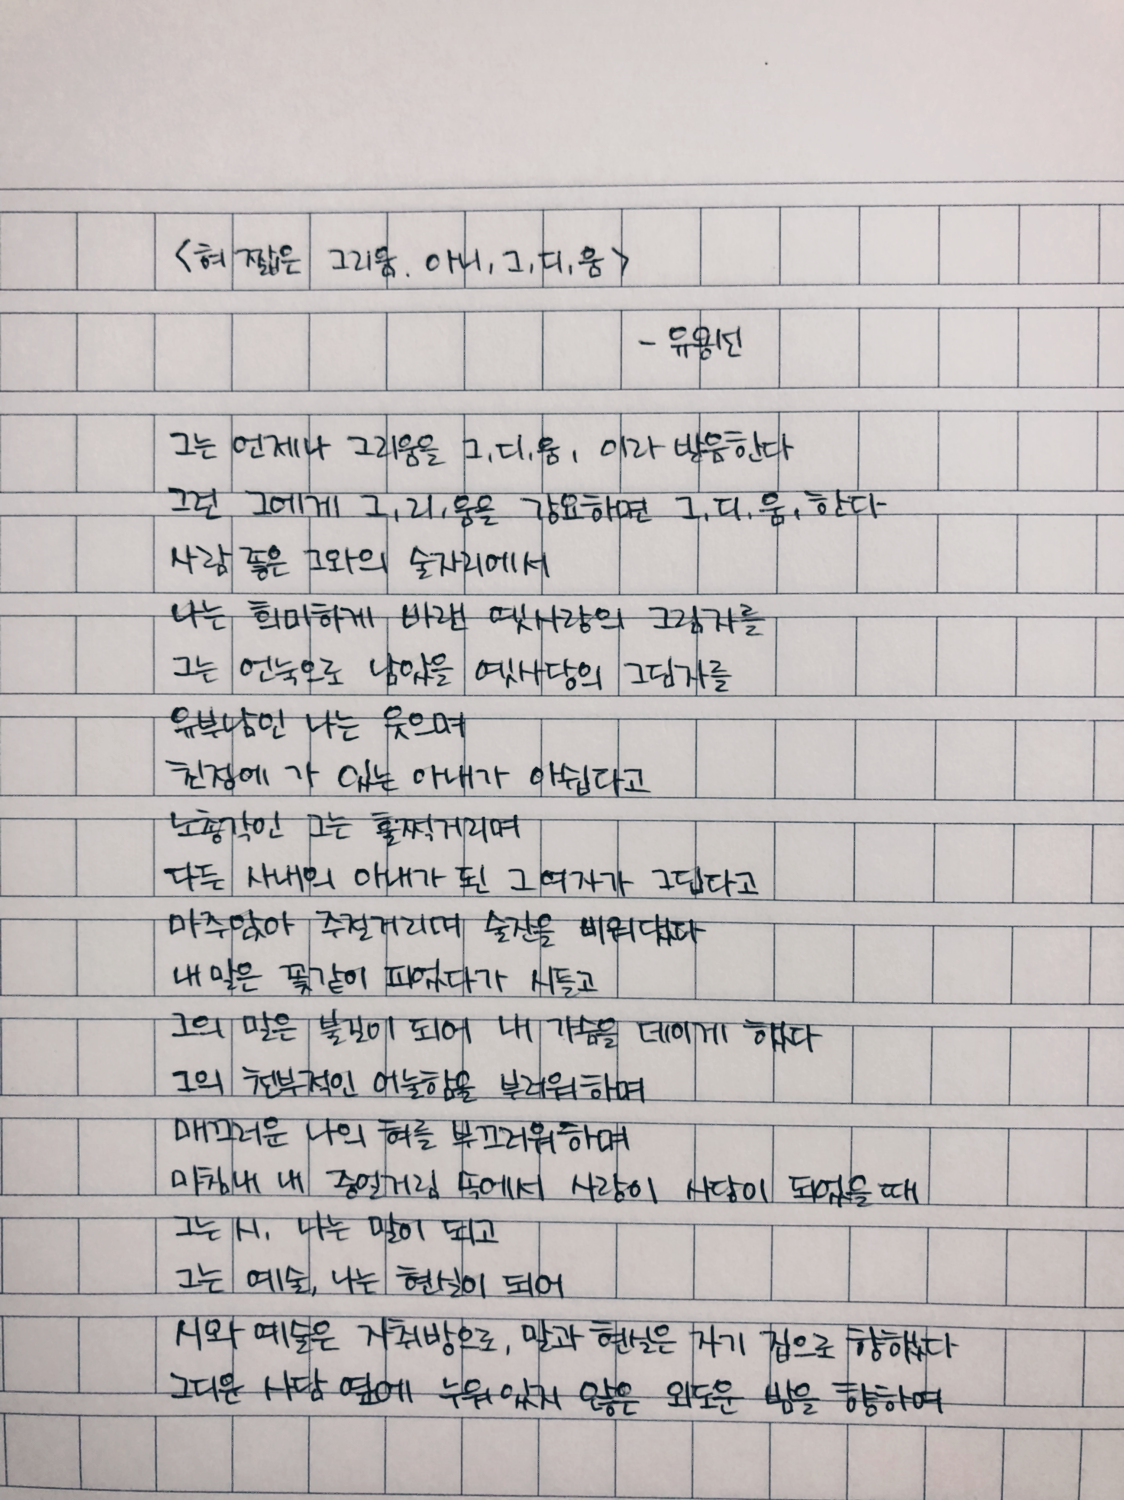 <혀 짧은 그리움. 아니, 그, 디, 움>
- 유용선
그는 언제나 그리움을 그, 디, 움, 이라 발음한다
그런 그에게 그, 리, 움을 강요하면 그, 디, 움, 한다
사람 좋은 그와의 술자리에서
나는 희미하게 바랜 옛사랑의 그림자를
그는 언눅으로 남았을 옛사당의 그딤자를
유부남인 나는 웃으며
친정에 가 있는 아내가 아쉽다고
노총각인 그는 훌쩍거리며
다든 사내의 아내가 된 그 여자가 그딥다고
마주앉아 주절거리며 술잔을 비워댔다
내 말은 꽃같이 피었다가 시들고
그의 말은 불길이 되어 내 가슴을 데이게 했다
그의 천부적인 어눌함을 부러워하며
매끄러운 나의 혀를 부끄러워하며
마침내 내 중얼거림 속에서 사랑이 사당이 되었을 때
그는 시, 나는 말이 되고
그는 예술, 나는 현실이 되어
시와 예술은 자취방으로, 말과 현실은 자기 집으로 향했다
그디운 사담 옆에 누워 있지 않은 외도운 밤을 향하여